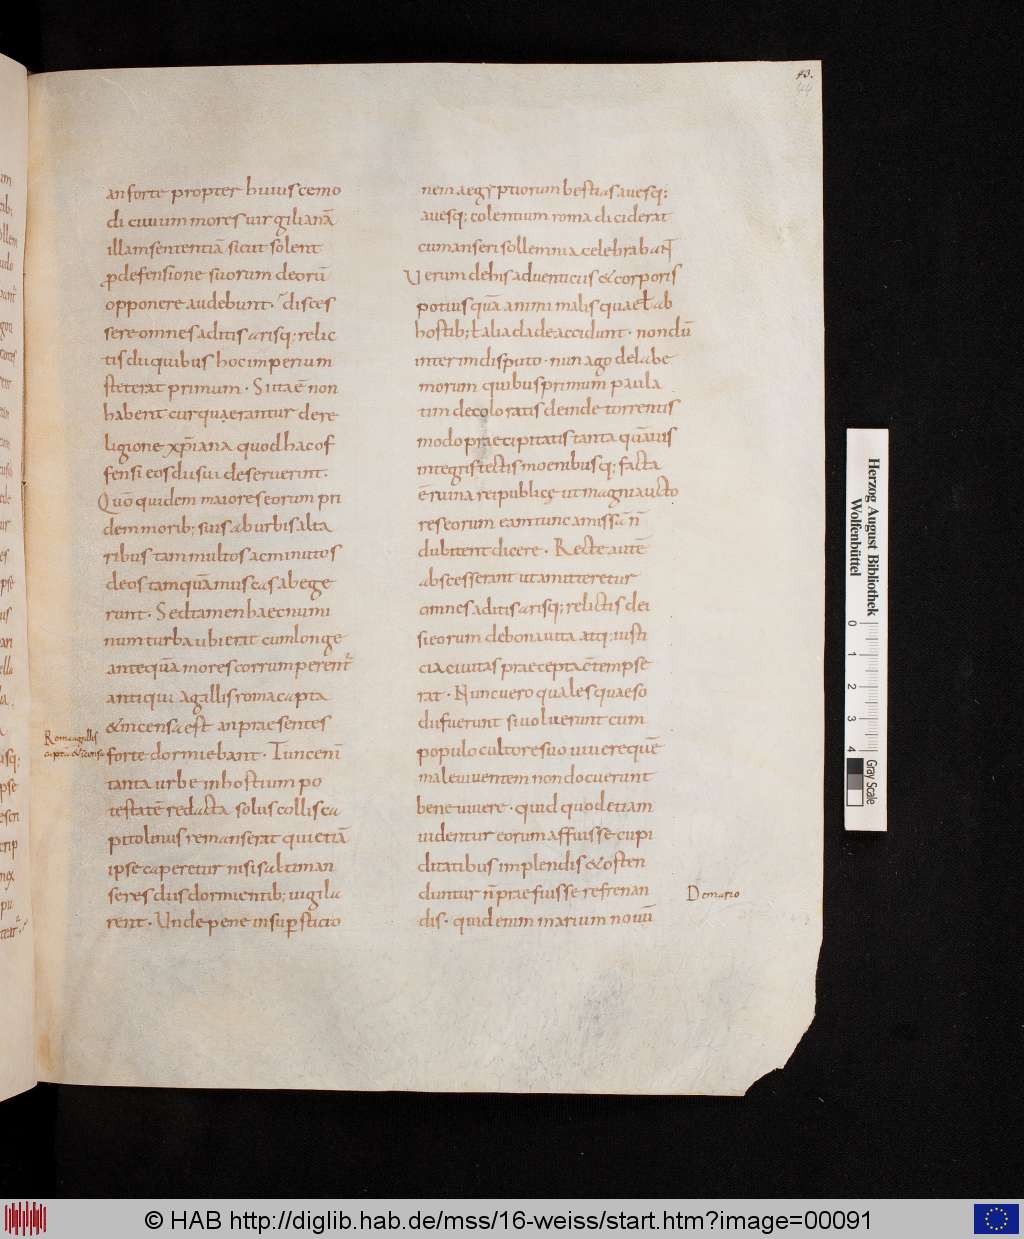 43.
44
an forte propter huiuscemo
di ciuium mores uirgilianā
illam sententiā sicut solent
ꝓ defensione suorum deorū
opponere audebunt · disces
sere omnes aditis arisq; relic
tis dii quibus hoc imperium
steterat primum · Si ita ē non
habent cur quaerantur de re
ligione xp̄iana quod hac of
fensi eos dii sui deseruerint ·
Quō quidem maiores eorum pri
dem morib; suis ab urbis alta
ribus tam multos ac minutos
deos tamquā muscas abege
runt · Sed tamen haec numi
num turba ubi erat cum longe
antequā mores corrumperent᷑
antiqui a gallis roma capta
& incensa est an praesentes
Roma a gallis
capta & incensa
forte dormiebant · Tunc enī
tanta urbe in hostium po
testatē redacta solus collis ca
pitolinus remanserat qui etiā
ipse caperetur nisi saltim an
seres diis dormientib; uigila
rent · Unde pene in suꝑsticio
nem aegyptiorum bestias auesq;
auesq; colentium roma diciderat
cum anseri sollemnia celebrabat᷑
Uerum de his aduenticiis & corporis
potius quā animi malis quae ƚ ab
hostib; ƚ alia clade accidunt · nondū
interim disputo · nunc ago de labe
morum quibus primum paula
tim decoloratis deinde torrentis
modo praecipitatis tanta quāuis
integris tectis moenibusq; facta
ē ruina reipublicę ut magni aucto
res eorum eam tunc amissā n̄
dubitent dicere · Recte autē
abscesserant ut amitteretur
omnes aditis arisq; relictis dei
si eorum de bona uita atq; iusti
cia ciuitas praecepta c̄tempse
rat · Nunc uero quales quaeso
dii fuerunt si uoluerunt cum
populo cultore suo uiuere quē
male uiuentem non docuerunt
bene uiuere · quid quod etiam
uidentur eorum affuisse cupi
ditatibus implendis & osten
duntur n̄ praefuisse refrenan
De mario
dis · qui denim marium nouū
Herzog August Bibliothek
Wolfenbüttel
0 1 2 3 4
Gray Scale
© HAB http://diglib.hab.de/mss/16-weiss/start.htm?image=00091